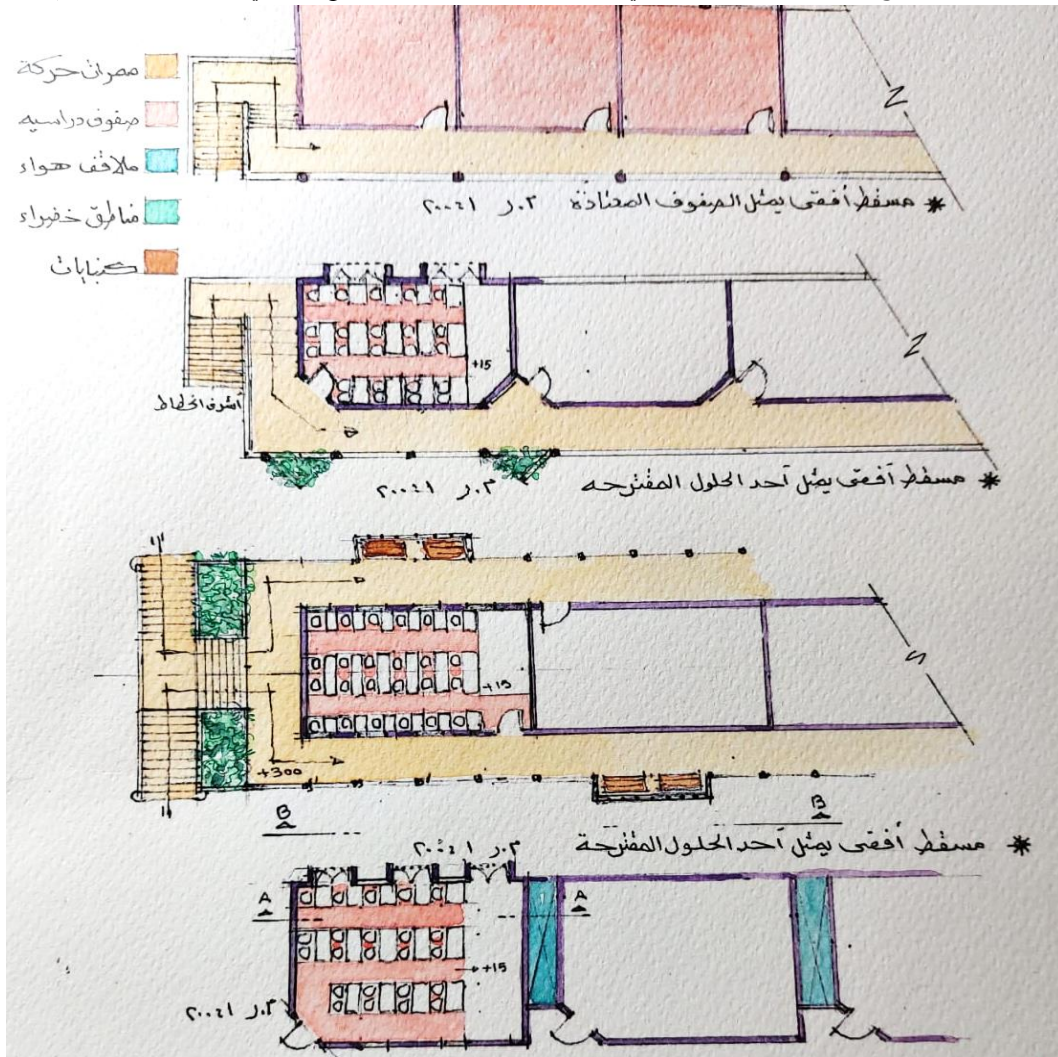 ممرات حركة
صفوف دراسيه
ملاقف هواء
مناطق خضراء
كنبايات
* مسقط أفقى يمثل الصفوف المعتادة م.ر ٢٠٠:١
+15
* مسقط أفقى يمثل أحد الحلول المقترحه م.ر ٢٠٠:١
+15
+300
B
B
* مسقط أفقى يمثل أحد الحلول المقترحة م.ر ٢٠٠:١
A
A
+15
م.ر ٢٠٠:١